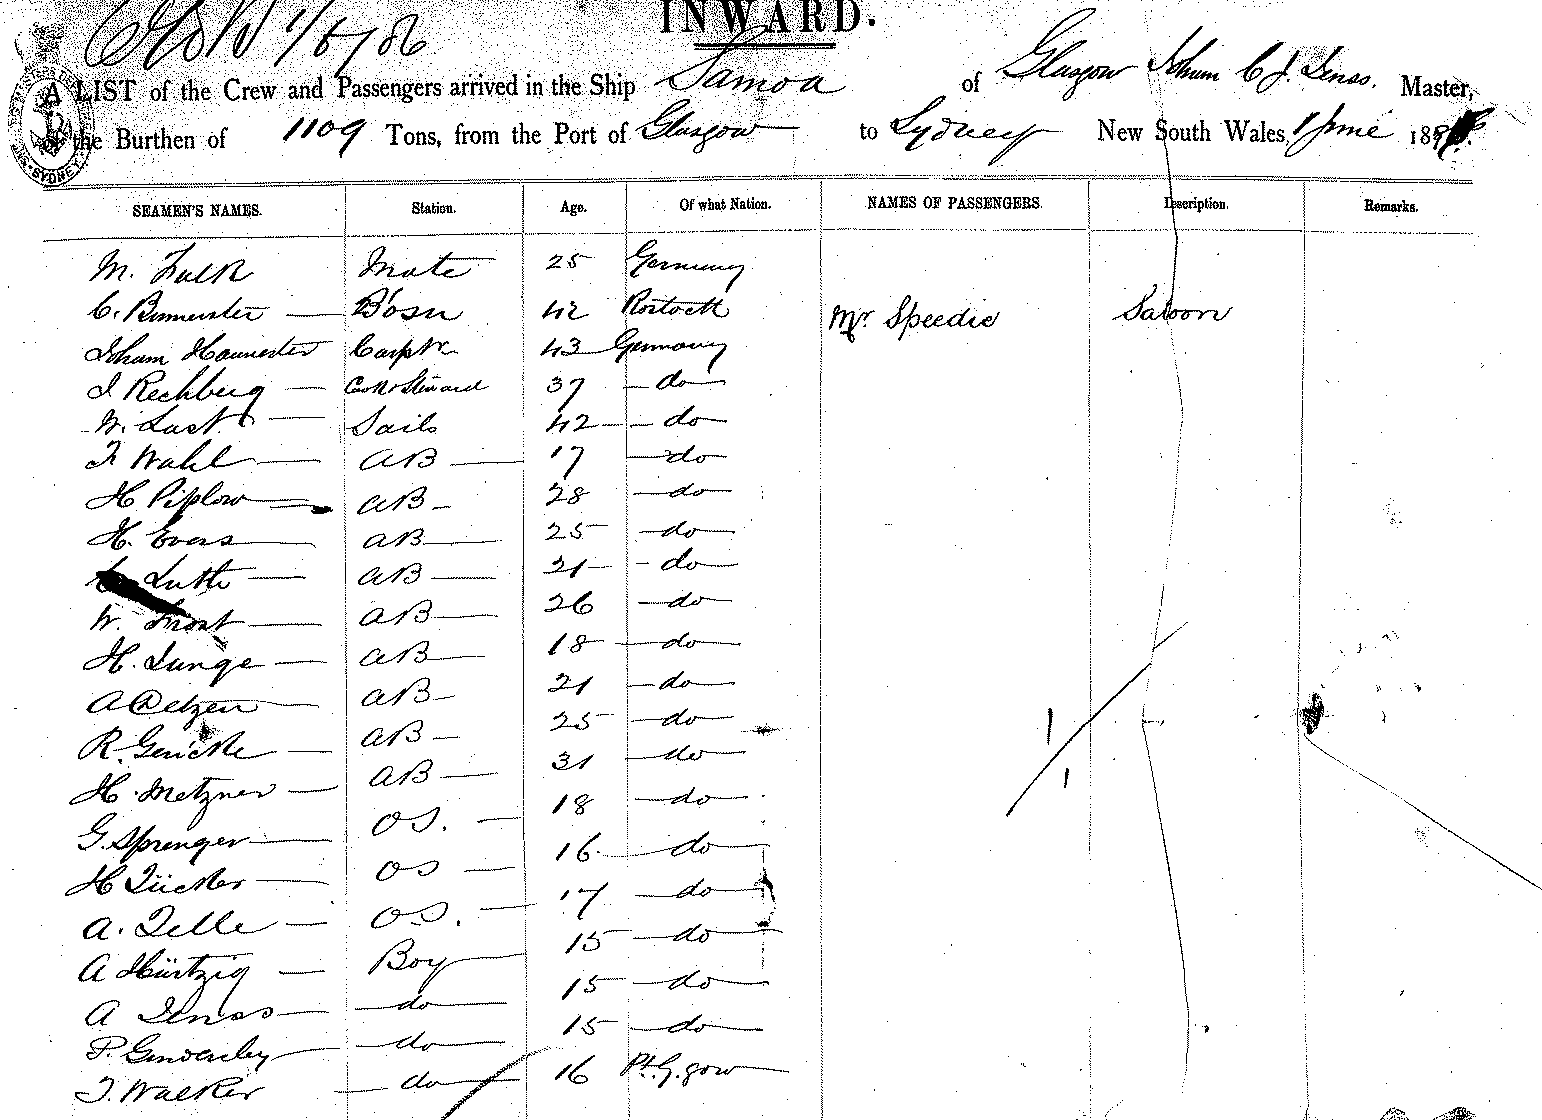 INWARD.
A LIST of the Crew and Passengers arrived in the Ship Samoa of Glasgow C. J. Master,
of the Burthen of 1109 Tons, from the Port of Glasgow to Sydney New South Wales, 1 June 188
SYDNEY
SEAMEN'S NAMES. Station. Age. Of what Nation. NAMES OF PASSENGERS. Description. Remarks.
M. Falk Mate 25 Germany
C. Bosn 42 Rostock Mr Speedie Saloon
Carptr 43 Germany
J Rechberg Cook & Steward 37 do
W. Last Sails 42 do
F Wahl AB 17 do
H Piplow AB 28 do
H. Evers AB 25 do
Luth AB 21 do
W. Frost AB 26 do
H. Lange AB 18 do
A AB 21 do
R. Gericke AB 25 do
H. Metzner AB 31 do
G. Sprenger OS. 18 do
H OS 16 do
A. OS. 17 do
A Hürtzig Boy 15 do
A do 15 do
P. do 15 do
T. Walker do 16 Pt. G.gow